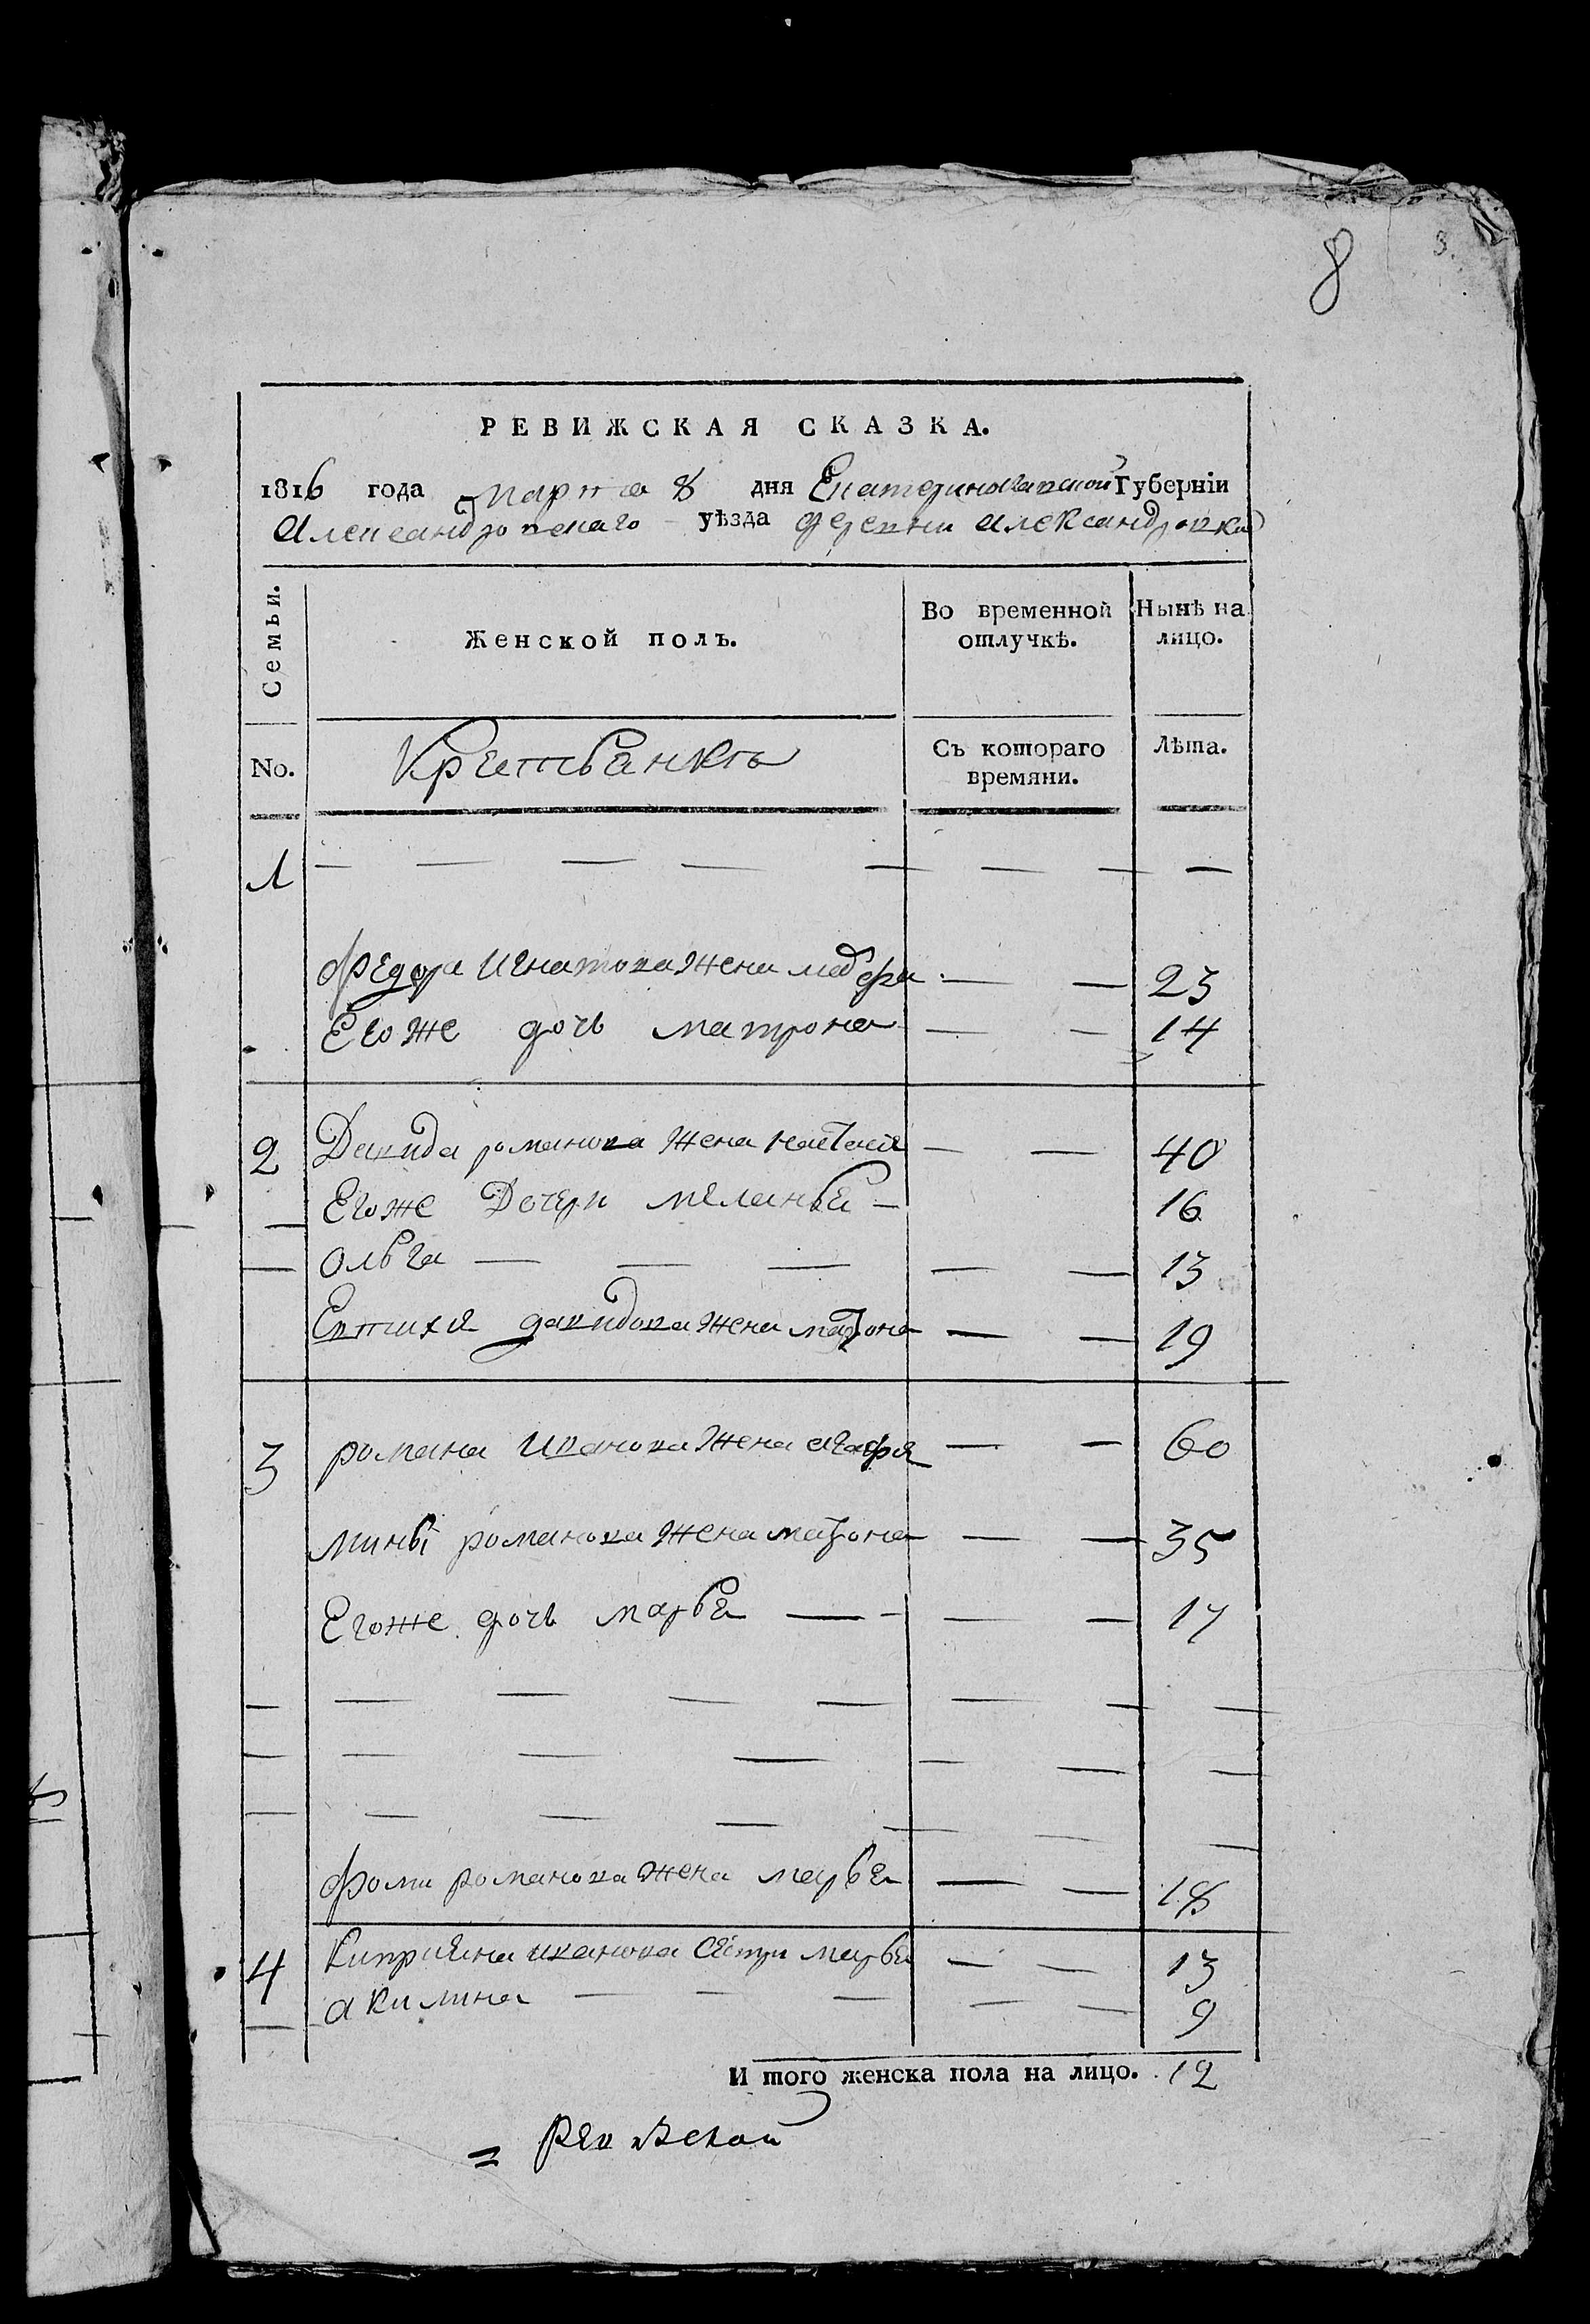 8
3.
РЕВИЖСКАЯ СКАЗКА.
1816 года марта 8 дня Екатеринославской Губерніи
Александровскаго уѣзда деревни александровки
Семьи.
Женской полъ.
Во временной отлучкѣ.
Нынѣ на лицо.
No.
Крестьянкъ
Съ котораго времяни.
Лѣта.
1 — — — — — — — —
Федора Игнатова жена — — 23
Егоже дочь матрона — — 14
2 Давида романова жена настасія — — 40
Егоже Дочери меланья — 16
Ольга — — — — — 13
Евтихя давидова жена матрона — — 19
3 романа Иванова жена агафя — — 60
мины романова жена матрона — — 35
Егоже дочь марья — — — — 17
фоми романова жена марья — — 18
4 Киприяна иванова сестри марья — — 13
акилина — — — — — 9
И того женска пола на лицо. 12
= Ревизской